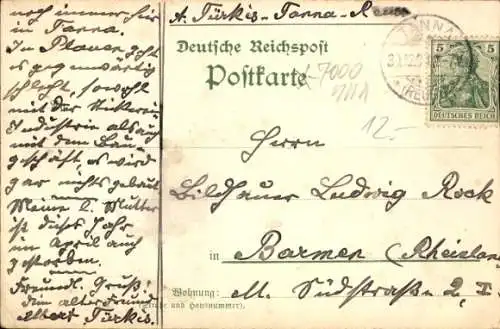 noch immer hier
in Tanna.
In Plauen geht
es gegenwärtig
schlecht, sowohl
mit der Stickerei
Industrie als auch
mit dem Bau-
geschäft, es wird
gar nichts gebaut
Meine l. Mutter
ist dieses Jahr
im April auch
gestorben.
Freundl. Gruß!
Dein alter Freund
Albert Türkis.
A. Türkis - Tanna - R
Deutsche Reichspost
Postkarte
TANNA
(REUSS)
5 5
DEUTSCHES REICH
7000
12.-
Herrn
Bildhauer Ludwig Rock
in Barmen (Rheinland
Wohnung: M. Südstraße 2, I.
(Straße und Hausnummer).